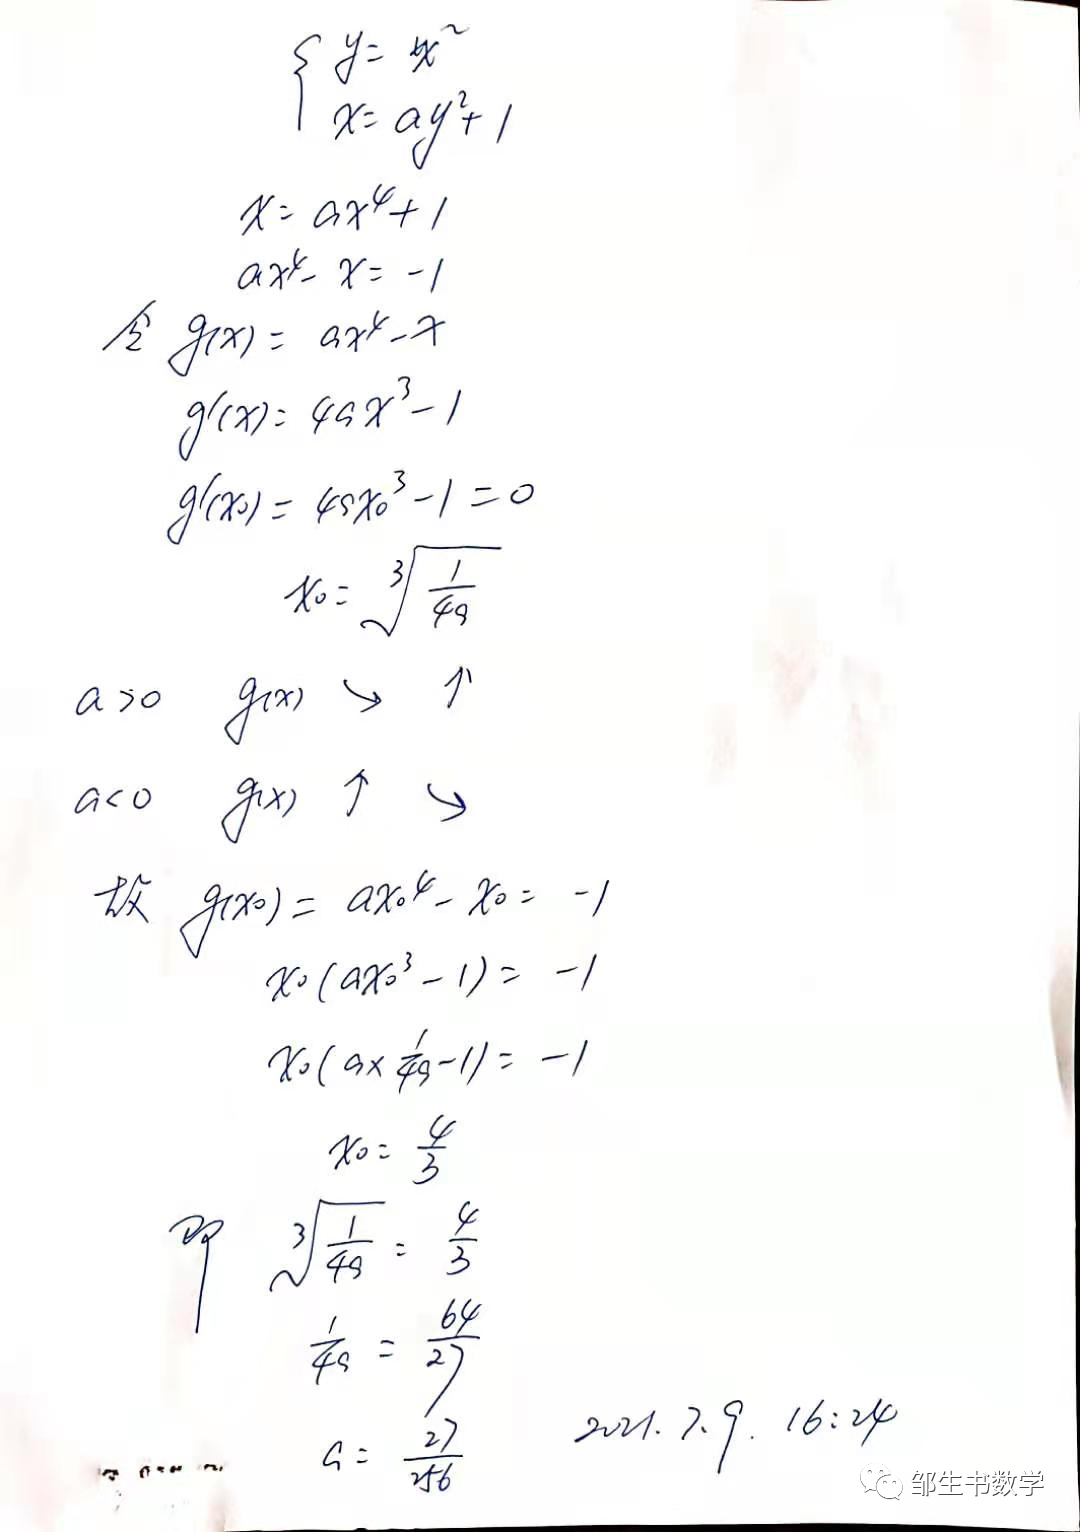 { y = x²
x = ay² + 1
x = ax⁴ + 1
ax⁴ - x = -1
令 g(x) = ax⁴ - x
g'(x) = 4ax³ - 1
g'(x₀) = 4ax₀³ - 1 = 0
x₀ = ∛(1/4a)
a > 0 g(x) ↘ ↑
a < 0 g(x) ↑ ↘
故 g(x₀) = ax₀⁴ - x₀ = -1
x₀(ax₀³ - 1) = -1
x₀(a × 1/4a - 1) = -1
x₀ = 4/3
即 ∛(1/4a) = 4/3
1/4a = 64/27
a = 27/256
2021.7.9. 16:24
邹生书数学